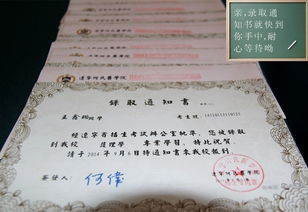 亲,录取通
知书就快到
你手中,耐
心等待呦
辽宁何氏医学院
录取通知书
孟 同学
考生号:
经辽宁省招生考试办公室批准,您被录取
到我校 护理学 专业学习,特此祝贺。
请于2014年9月6日持通知书来我校报到。
签发人:
何伟
辽宁何氏医学院